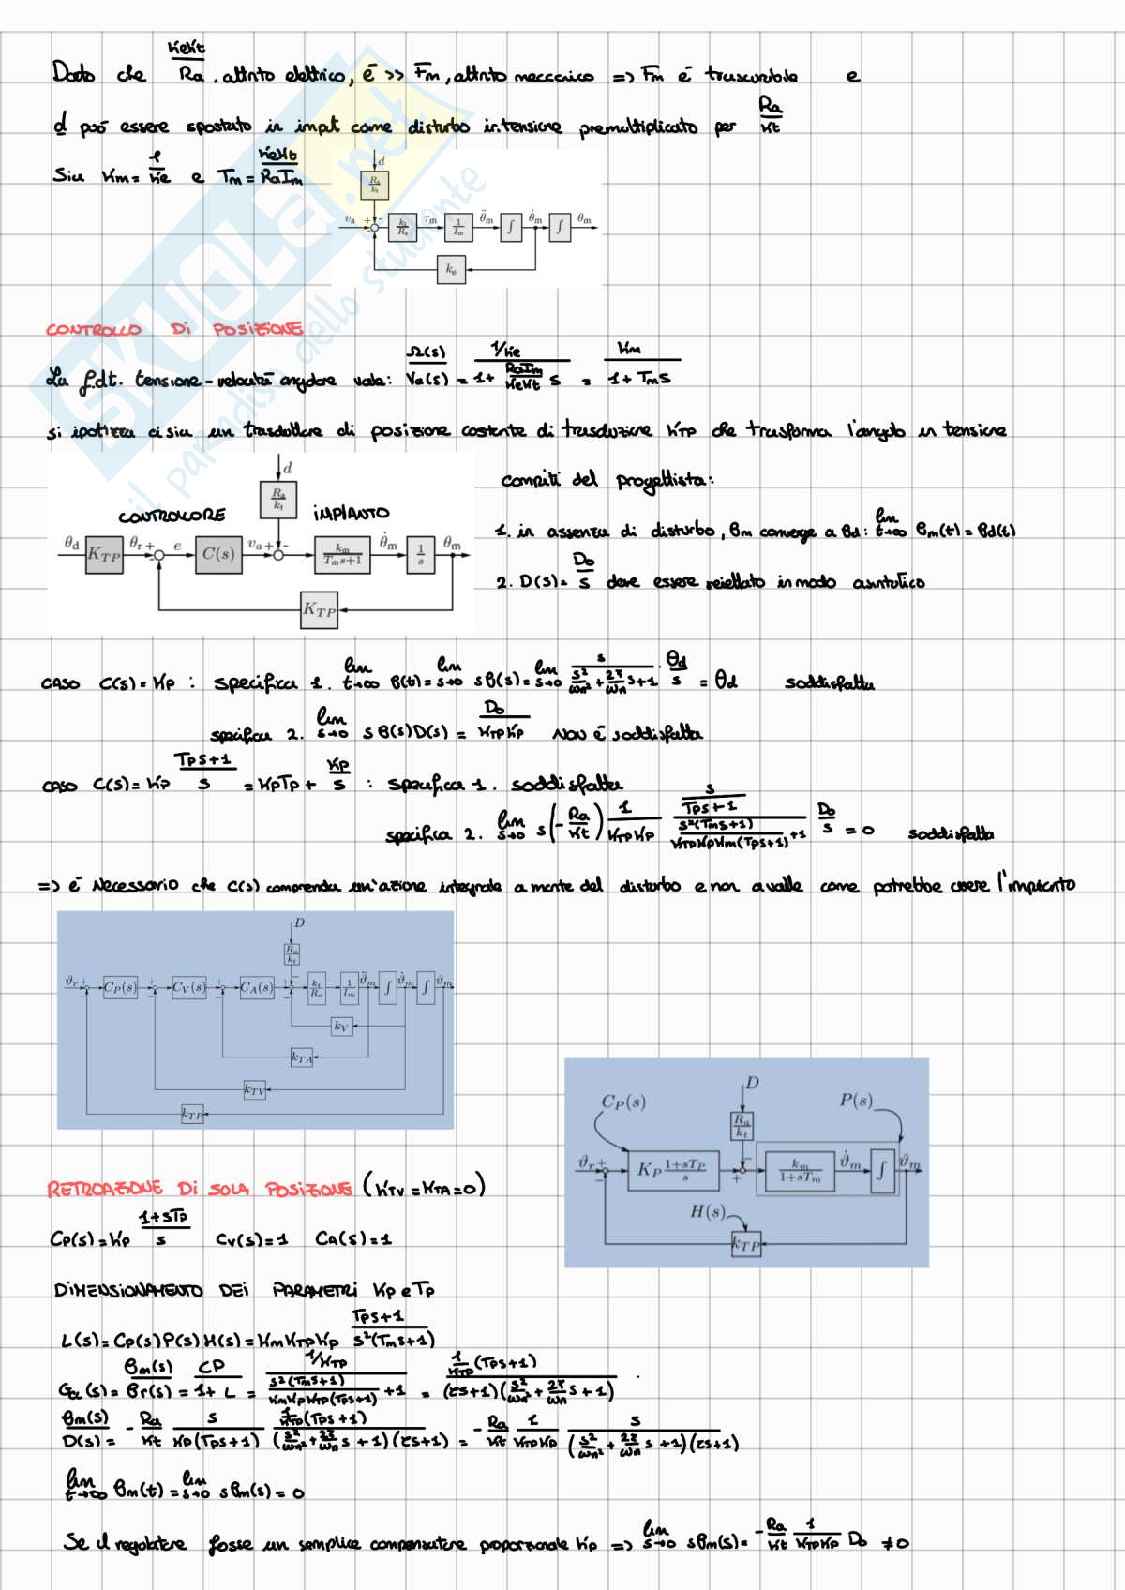 Dato che KeKt/Ra, attrito elettrico, è >> Fm, attrito meccanico => Fm è trascurabile e
d può essere spostato in input come disturbo in tensione premultiplicato per Ra/Kt
Sia Km = 1/Ke e Tm = KeKt/RaIm
d
Ra/kt
va + - kt/Ra τm 1/Im θ̈m ∫ θ̇m ∫ θm
CONTROLLO Di POSIZIONE
La f.d.t. tensione-velocità angolare vale: Ω(s)/Va(s) = (1/Ke)/(1+ RaIm/KeKt s) = Km/(1+Tms)
si ipotizza ci sia un trasduttore di posizione costante di trasduzione KTP che trasforma l'angolo in tensione
compiti del progettista:
d
Ra/kt
CONTROLLORE IMPIANTO
1. in assenza di disturbo, θm converge a θd: lim t→∞ θm(t) = θd(t)
θd KTP θr + - e C(s) va + - km/(Tms+1) θ̇m 1/s θm
2. D(s) = D0/s deve essere reiettato in modo asintotico
KTP
CASO C(s) = Kp : specifica 1. lim t→∞ θ(t) = lim s→0 sθ(s) = lim s→0 s/(s²/ωn² + 2ζ/ωn s+1) · θd/s = θd soddisfatta
specifica 2. lim s→0 sθ(s)D(s) = D0/KTPKp NON è soddisfatta
CASO C(s) = Kp (Tps+1)/s = KpTp + Kp/s : specifica 1. soddisfatta
specifica 2. lim s→0 s(-Ra/Kt) 1/KTPKp (s/(Tps+1))/(s²(Tms+1)/KTPKpKm(Tps+1) +1) D0/s = 0 soddisfatta
=> è Necessario che C(s) comprenda un'azione integrale a monte del disturbo e non a valle come potrebbe essere l'impianto
D
Ra/kt
ϑr + - CP(s) + - CV(s) + - CA(s) kt/Ra 1/Im ϑ̈m ∫ ϑ̇m ∫ ϑm
kV
kTA
kTV
kTP
CP(s) D P(s)
Ra/kt
ϑr + - KP (1+sTP)/s + - km/(1+sTm) ϑ̇m ∫ ϑm
H(s)
kTP
RETROAZIONE Di SOLA POSIZIONE (KTV = KTA = 0)
Cp(s) = Kp (1+sTp)/s Cv(s) = 1 CA(s) = 1
DIMENSIONAMENTO DEI PARAMETRI Kp e Tp
L(s) = Cp(s)P(s)H(s) = KmKTPKp (Tps+1)/(s²(Tms+1))
GCL(s) = θm(s)/θr(s) = CP/(1+L) = (1/KTP)/(s²(Tms+1)/KmKpKTP(Tps+1) +1) = (1/KTP (Tps+1))/((τs+1)(s²/ωn² + 2ζ/ωn s + 1))
θm(s)/D(s) = -Ra/Kt s/(Kp(Tps+1)) (1/KTP (Tps+1))/((s²/ωn² + 2ζ/ωn s + 1)(τs+1)) = -Ra/Kt 1/KTPKp s/((s²/ωn² + 2ζ/ωn s +1)(τs+1))
lim t→∞ θm(t) = lim s→0 sθm(s) = 0
Se il regolatore fosse un semplice compensatore proporzionale Kp => lim s→0 sθm(s) = -Ra/Kt 1/KTPKp D0 ≠ 0
SKUOLA.net
il paradiso dello studente